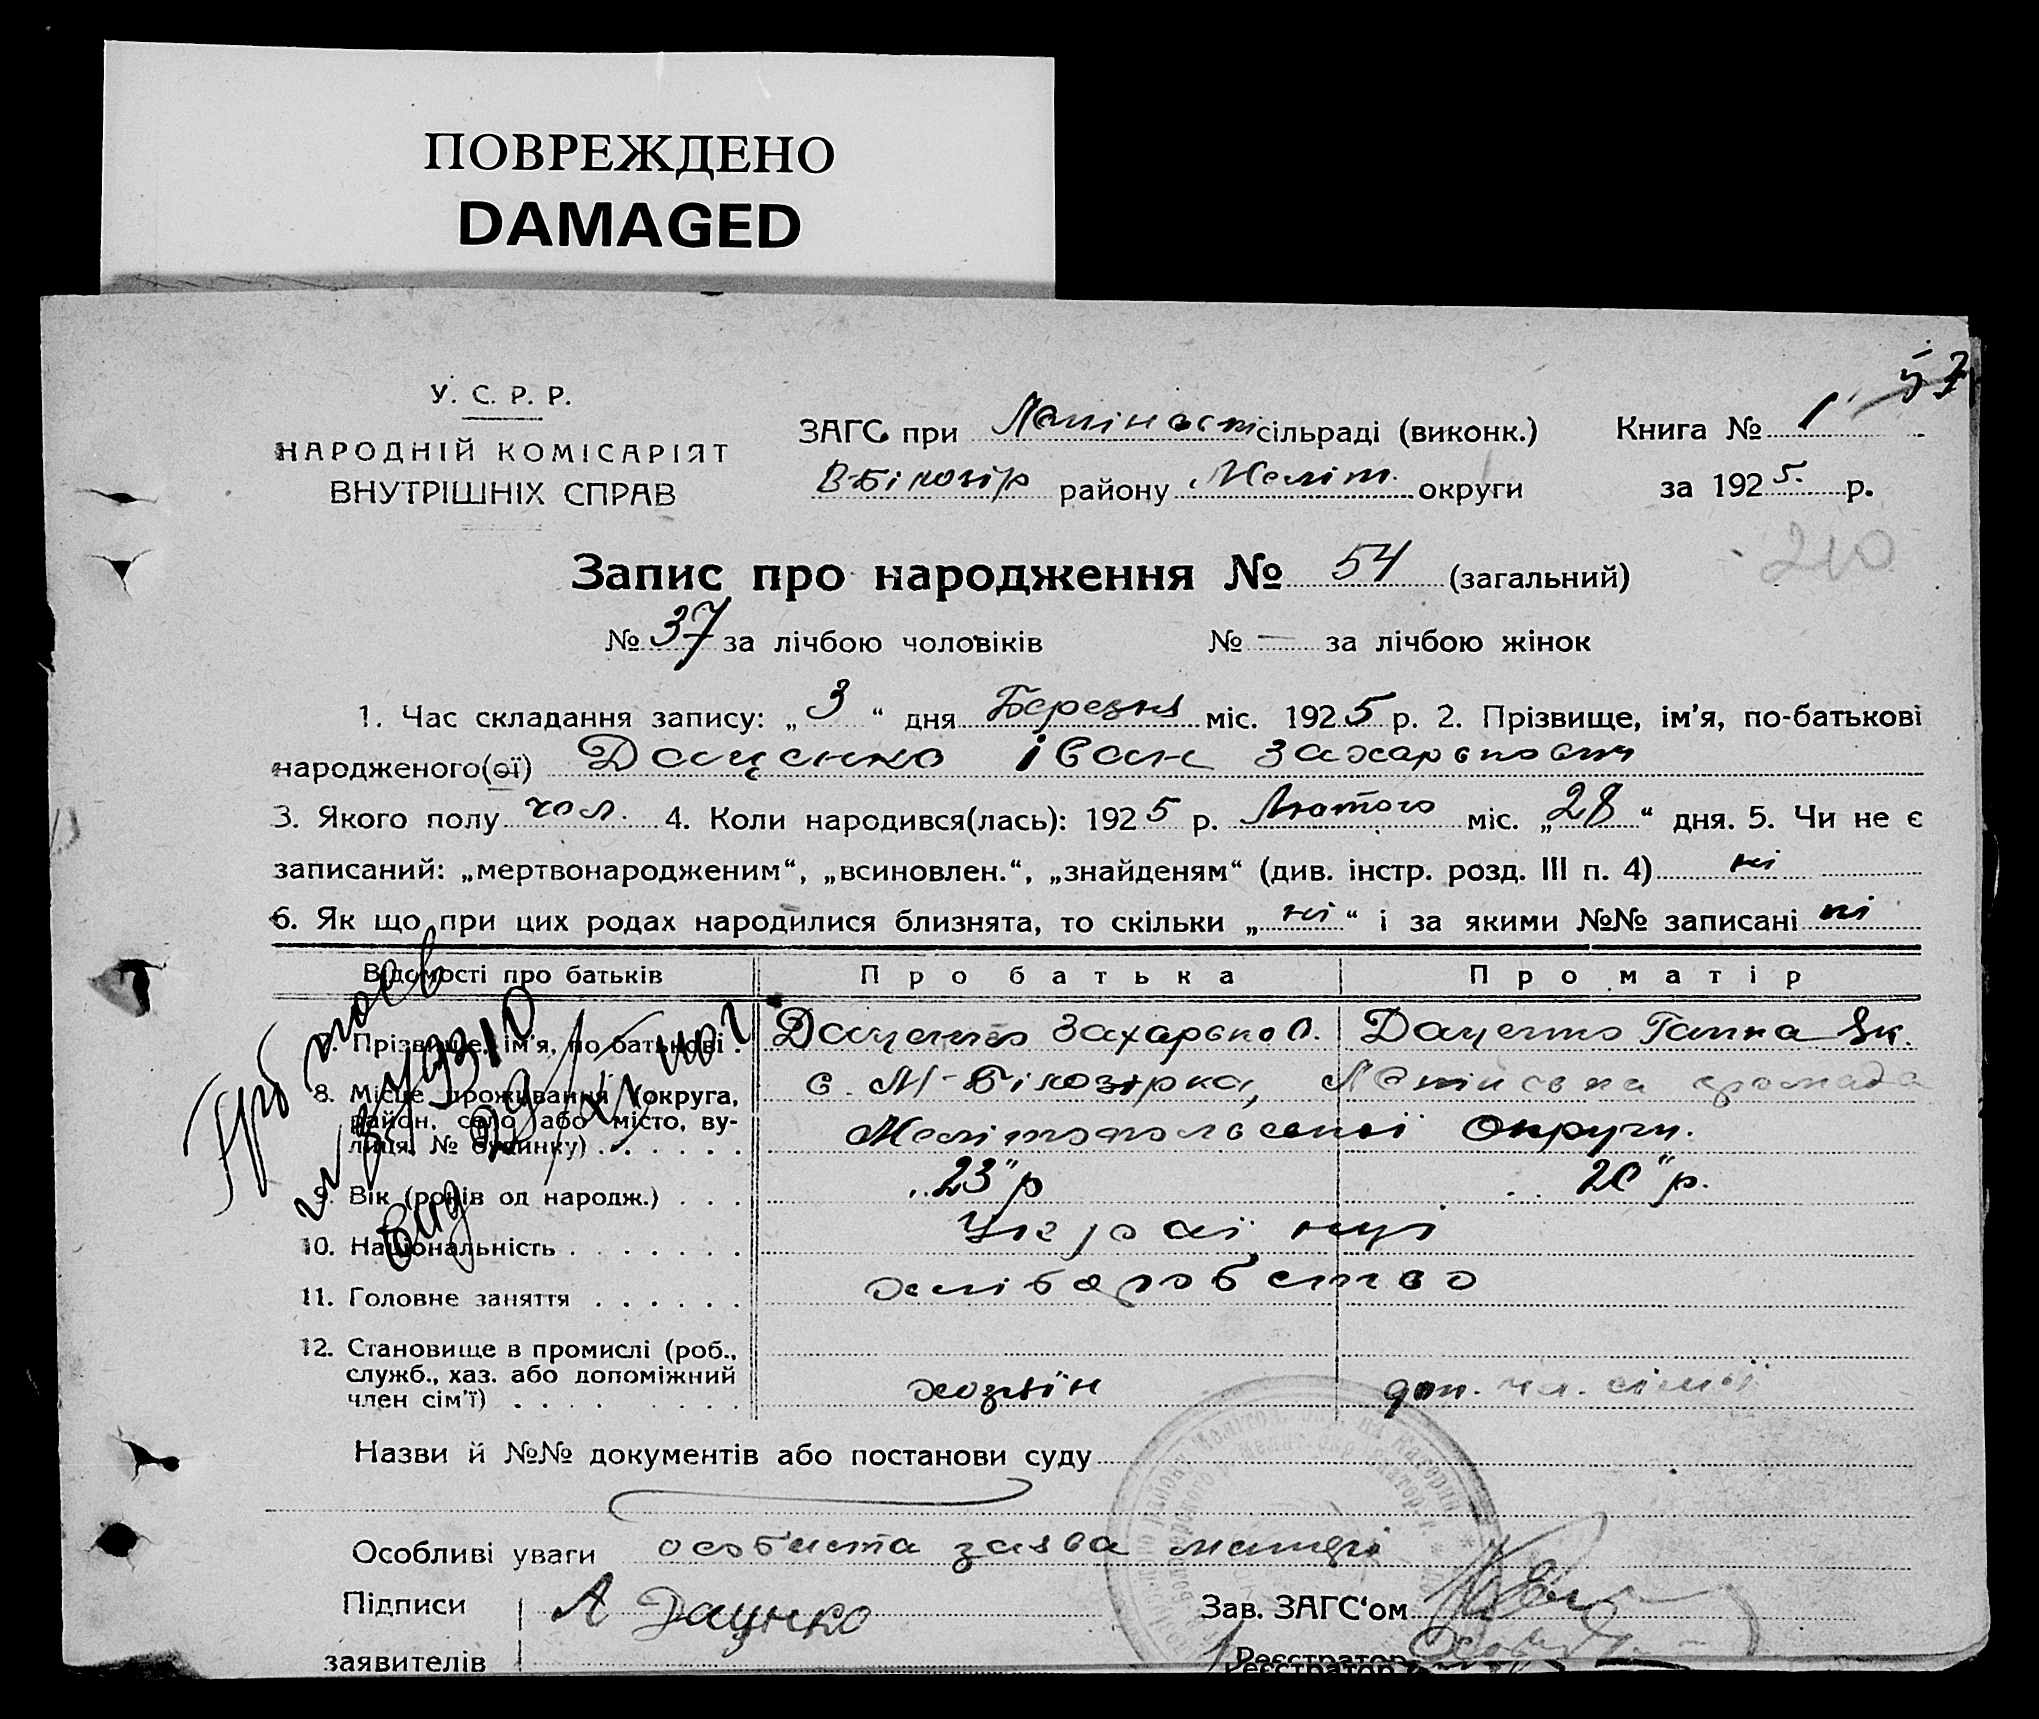 ПОВРЕЖДЕНО
DAMAGED
У. С. Р. Р.
НАРОДНІЙ КОМІСАРІЯТ
ВНУТРІШНІХ СПРАВ
ЗАГС при сільраді (виконк.)
ВБілозір району Меліт. округи
Книга № 1
за 1925. р.
57
210
Запис про народження № 54 (загальний)
№ 37 за лічбою чоловіків № — за лічбою жінок
1. Час складання запису: „ 3 “ дня Березня міс. 1925 р. 2. Прізвище, ім'я, по-батькові
народженого(ої) Даценко Іван Захарьнович
3. Якого полу чол. 4. Коли народився(лась): 1925 р. Лютого міс. „28“ дня. 5. Чи не є
записаний: „мертвонародженим“, „всиновлен.“, „знайденям“ (див. інстр. розд. III п. 4) ні
6. Як що при цих родах народилися близнята, то скільки „ ні “ і за якими №№ записані ні
Відомості про батьків Про батька Про матір
7. Прізвище, ім'я, по батькові. Даценко Захарько О. Даценко Ганна Як.
8. Місце проживання (округа, район, село або місто, вулиця, № будинку) . . . . . . с. М-Білозірка, громада
Мелітопольської Округи.
9. Вік (років од народж.) . . . 23" р 20" р.
10. Національність . . . . . . . Українці
11. Головне заняття . . . . . . хліборобство
12. Становище в промислі (роб.,
служб., хаз. або допоміжний
член сім'ї) . . . . . . . . хозяїн доп. чл. сімьї
Назви й №№ документів або постанови суду
Особливі уваги особиста заява матері
Підписи А Даценко Зав. ЗАГС‘ом
заявителів Реєстратор